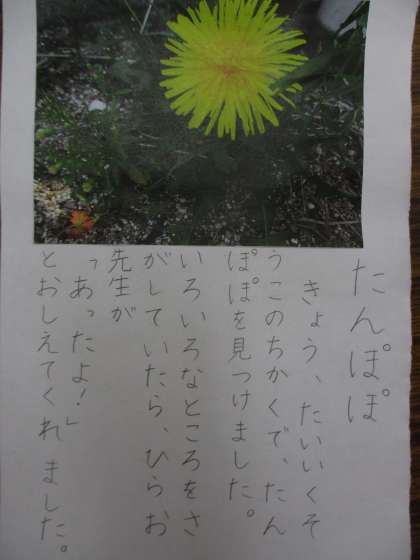 たんぽぽ
きょう、たいいくそ
うこのちかくで、たん
ぽぽを見つけました。
いろいろなところをさ
がしていたら、ひらお
先生が
「あったよ！」
とおしえてくれました。